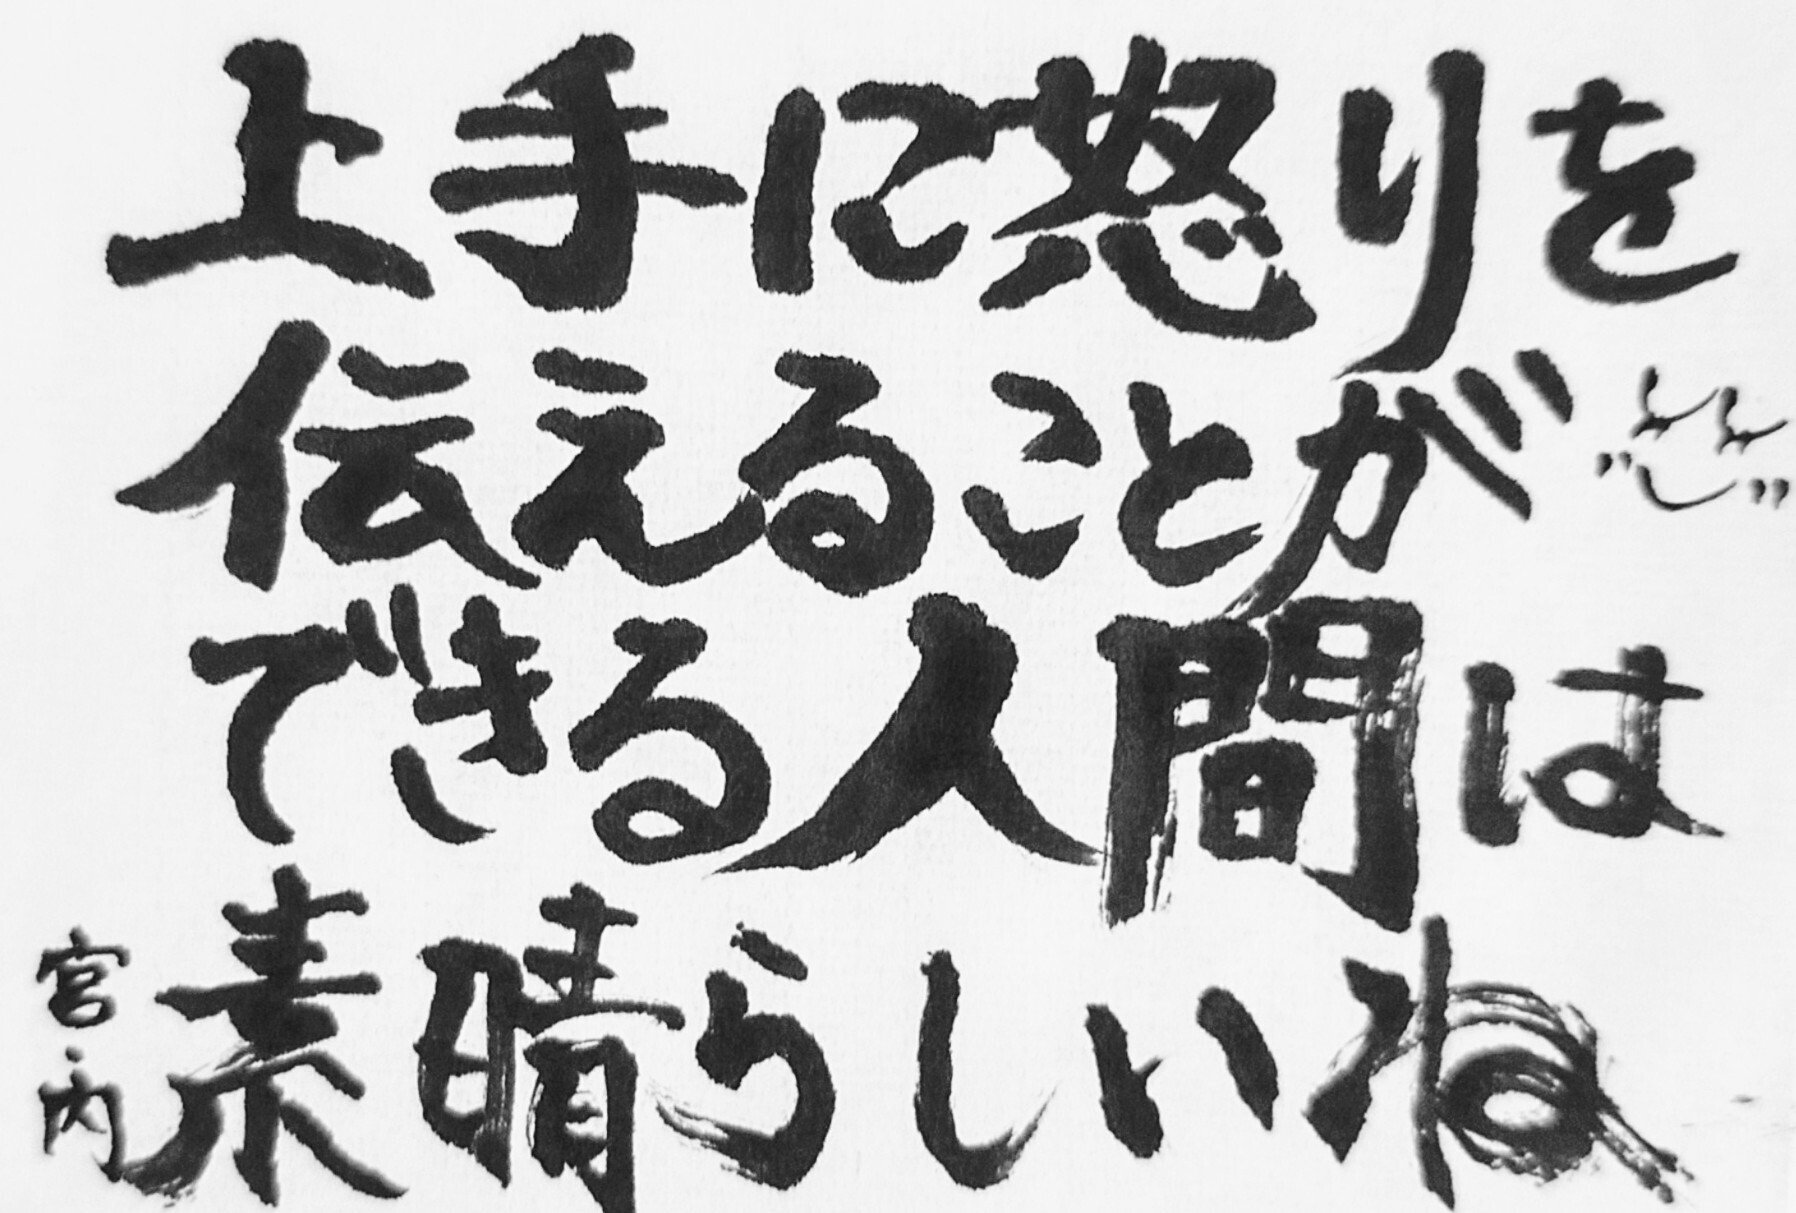 上手に怒りを
伝えることが
できる人間は
素晴らしいね
宮内